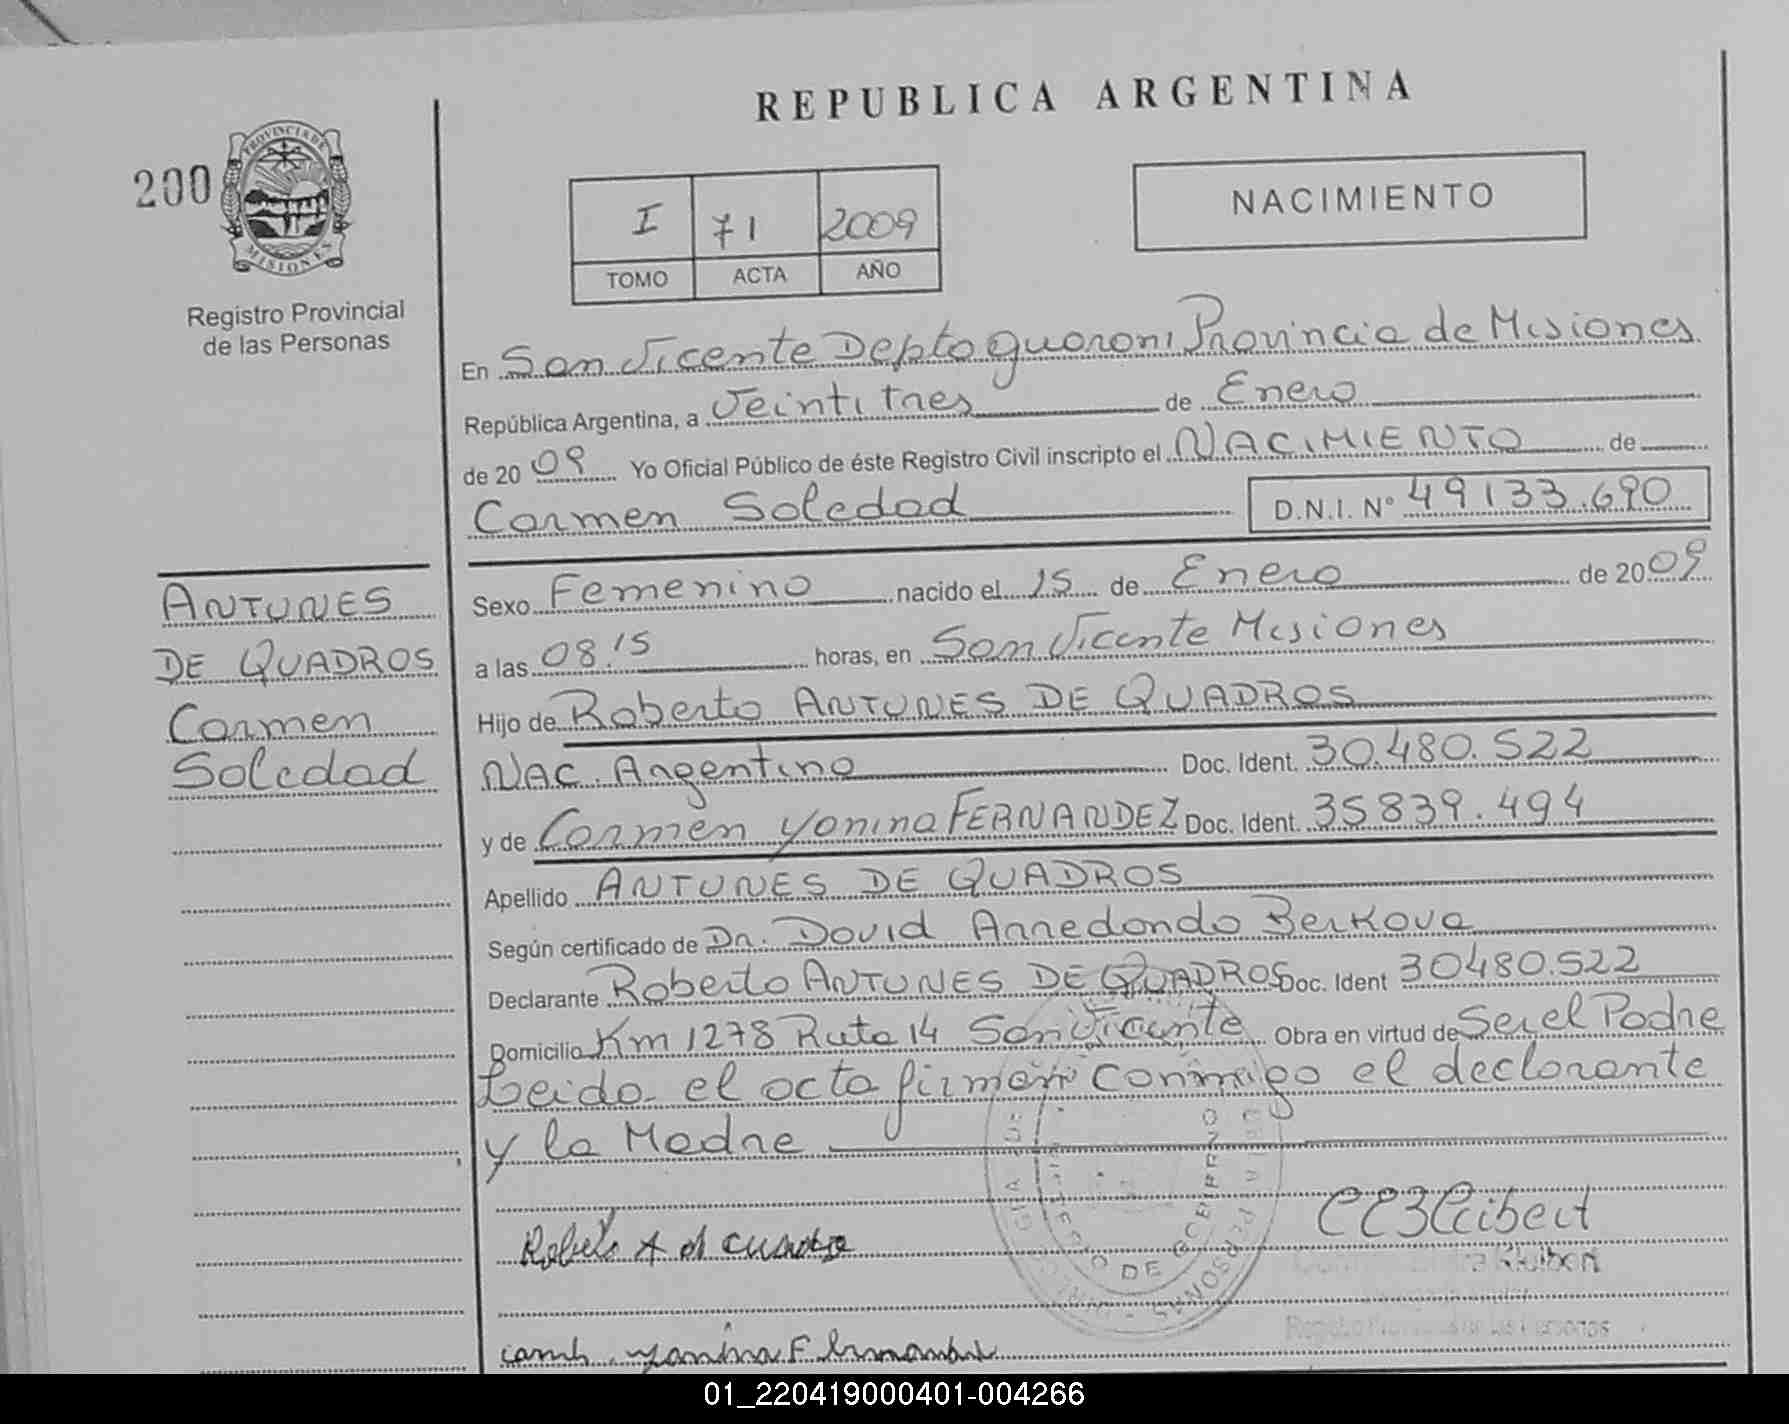 REPUBLICA ARGENTINA
200
PROVINCIA DE
MISIONES
Registro Provincial
de las Personas
I 71 2009
TOMO ACTA AÑO
NACIMIENTO
En San Vicente Depto guarani Provincia de Misiones
República Argentina, a Veintitres de Enero
de 20 09 Yo Oficial Público de éste Registro Civil inscripto el NACIMIENTO de
Carmen Soledad D.N.I. Nº 49133.690
ANTUNES
DE QUADROS
Carmen
Soledad
Sexo Femenino nacido el 15 de Enero de 2009
a las 08.15 horas, en San Vicente Misiones
Hijo de Roberto ANTUNES DE QUADROS
NAC. Argentino Doc. Ident. 30.480.522
y de Carmen Yanina FERNANDEZ Doc. Ident. 35839.494
Apellido ANTUNES DE QUADROS
Según certificado de Dr. David Arredondo Berkova
Declarante Roberto ANTUNES DE QUADROS Doc. Ident 30480.522
Domicilio Km 1278 Ruta 14 San Vicente Obra en virtud de Ser el Padre
Leida el acta firman conmigo el declarante
y la Madre
Yanina F
Registro Provincial de las Personas
01_220419000401-004266